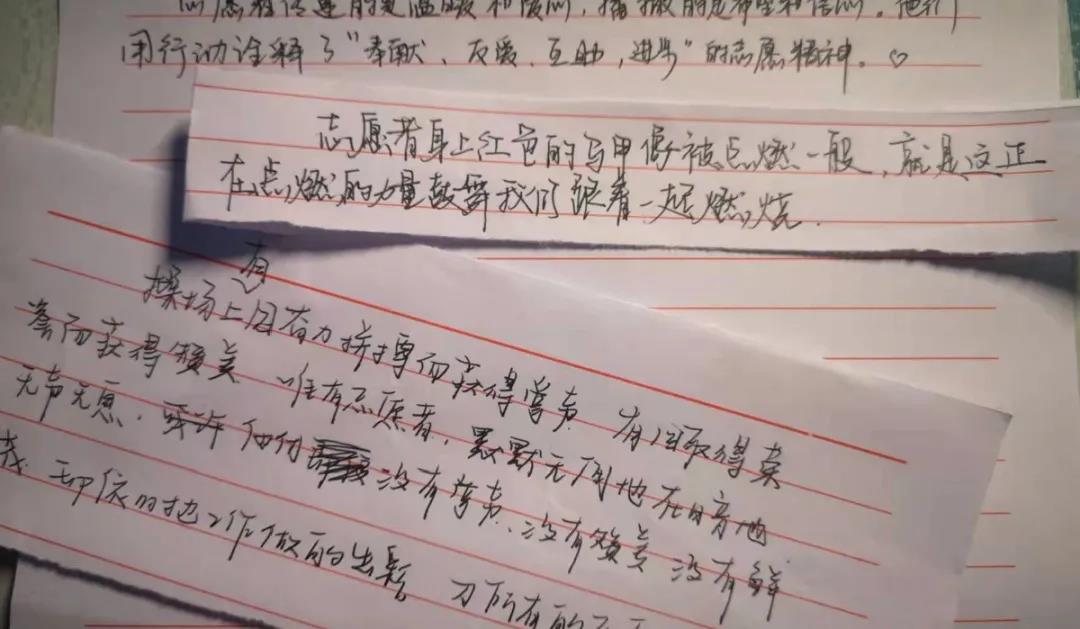 志愿者传递的是温暖和爱心，播撒的是希望和信心。他们
用行动诠释了“奉献、友爱、互助，进步”的志愿精神。♡
志愿者身上红色的马甲像被点燃一般，就是这正
在点燃的力量鼓舞我们跟着一起燃烧.
有
操场上因奋力拼搏而获得掌声 有因取得荣
誉而获得赞美 唯有志愿者，默默无闻地在
无声无息. 他们 没有掌声、没有赞美 没有鲜
却依旧把工作做的出 所有的